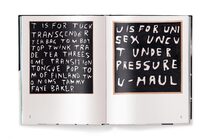 T IS FOR TUCK
TRANSCENDER
TEA BAG TOM BOY
TOP TWINK TRA
DE TEA THREES
OME TRANSITION
TONGUE POP TO
M OF FINLAND TW
O NOMS TAMMY
FAYE BAKER
U IS FOR UNI
SEX UNCU
T UNDER
PRESSURE
U-HAUL